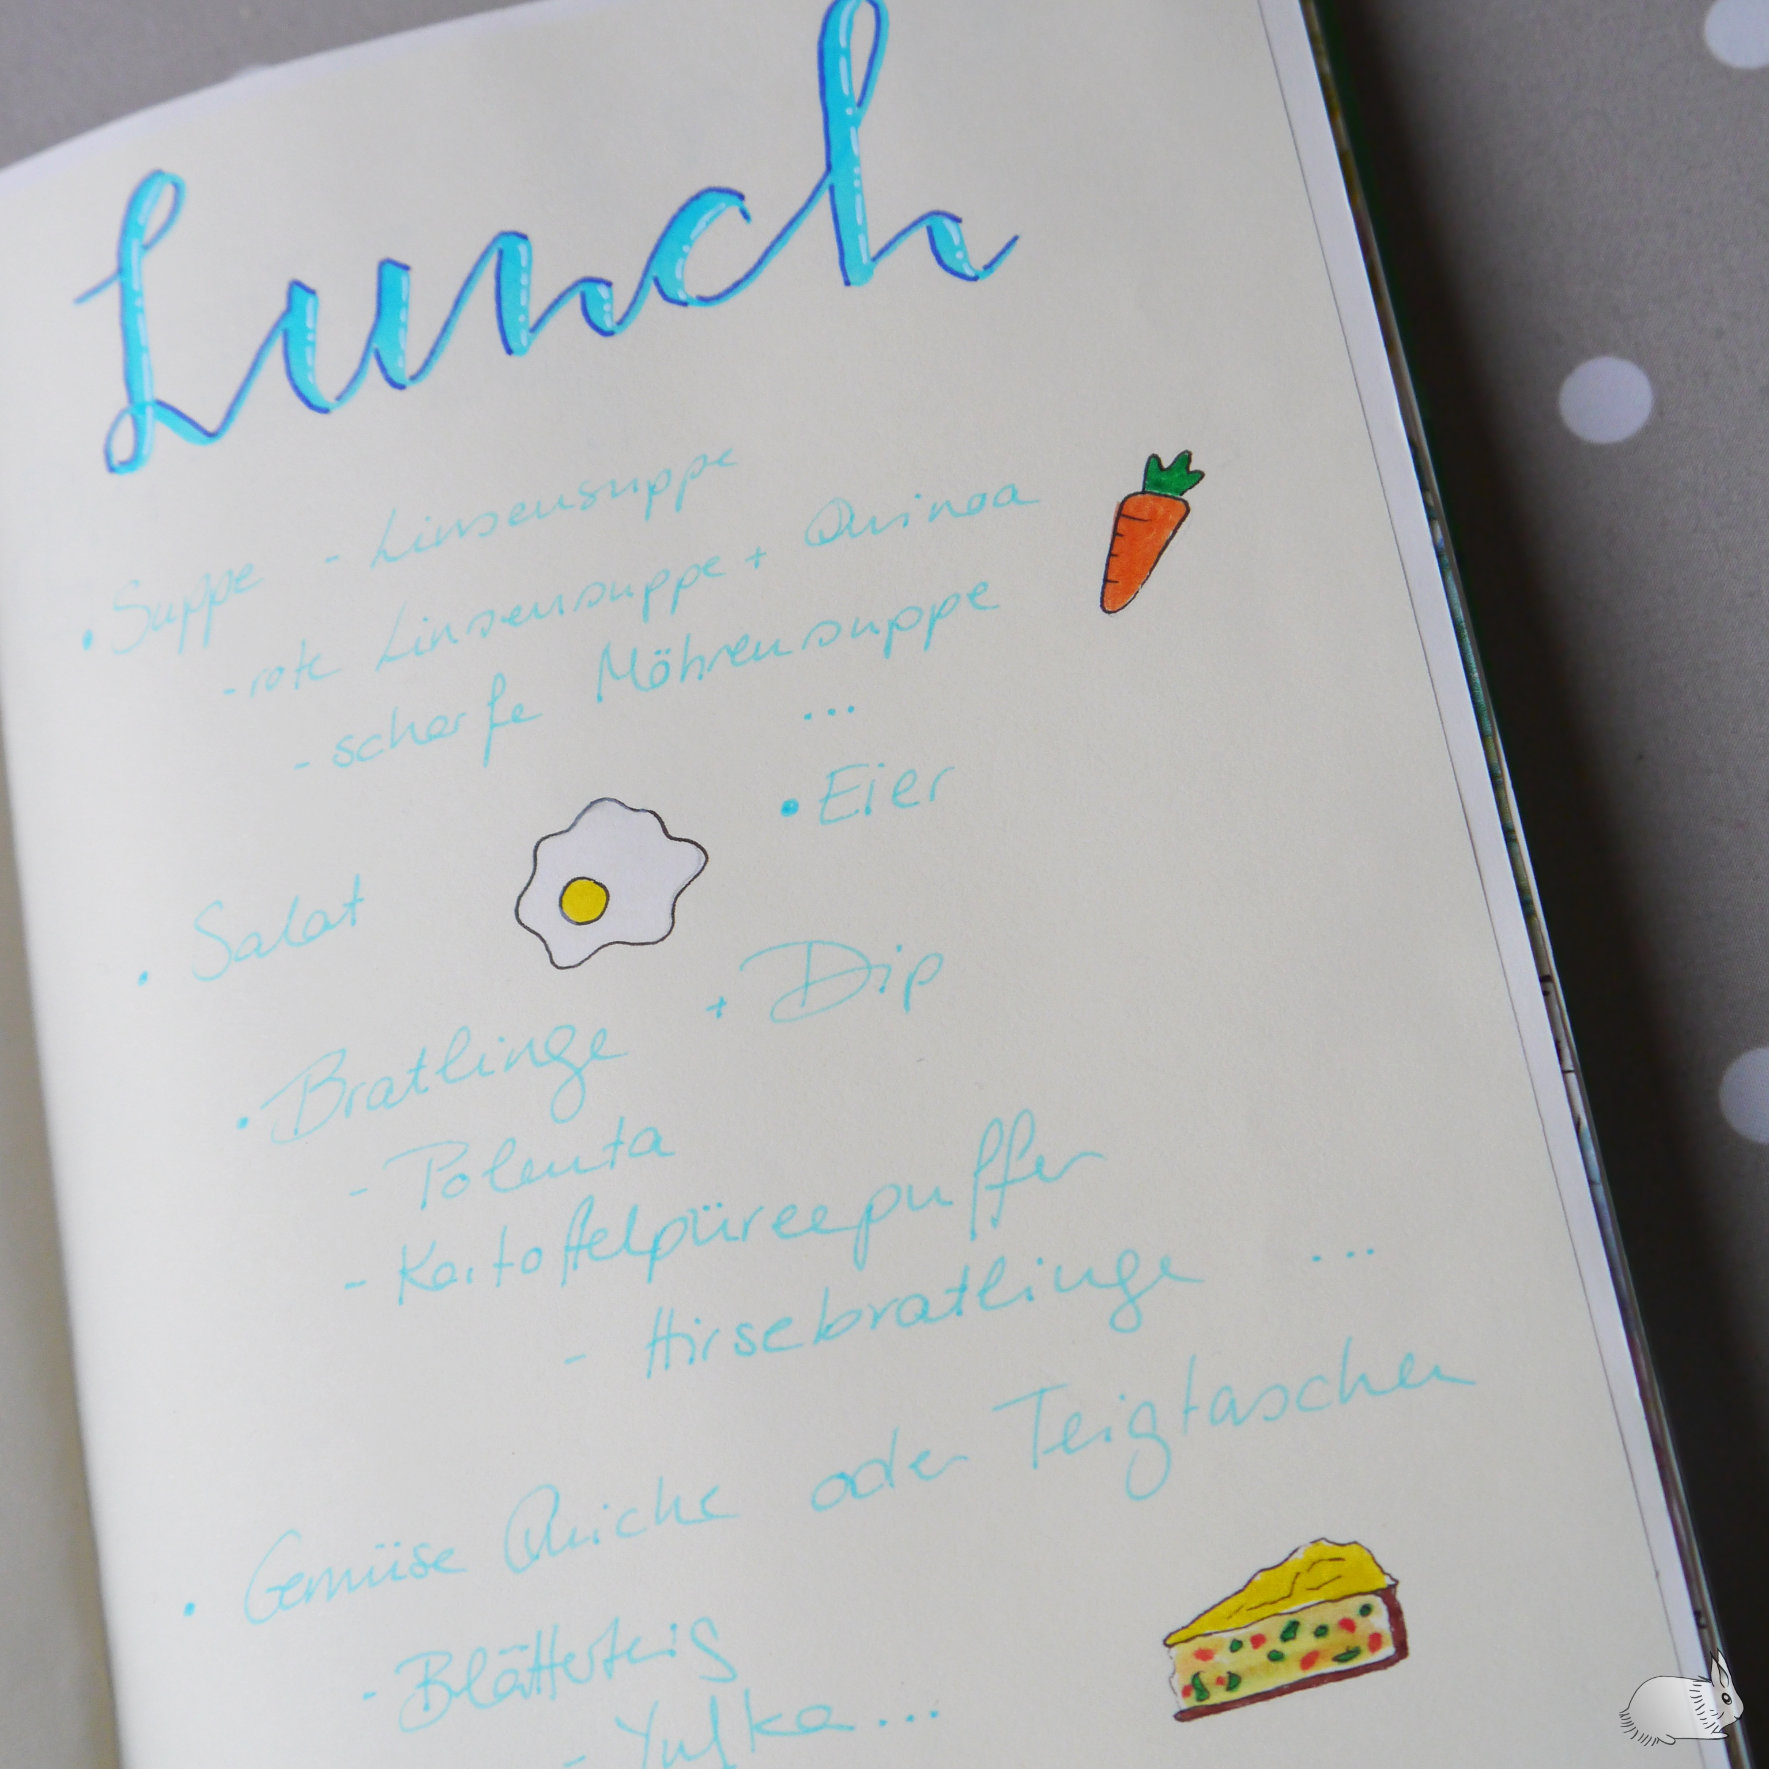 Lunch
• Suppe - Linsensuppe
- rote Linsensuppe + Quinoa
- scharfe Möhrensuppe
...
• Eier
• Salat
• Bratlinge + Dip
- Polenta
- Kartoffelpüreepuffer
- Hirsebratlinge ...
• Gemüse Quiche oder Teigtaschen
- Blätterteig
- Yufka ...